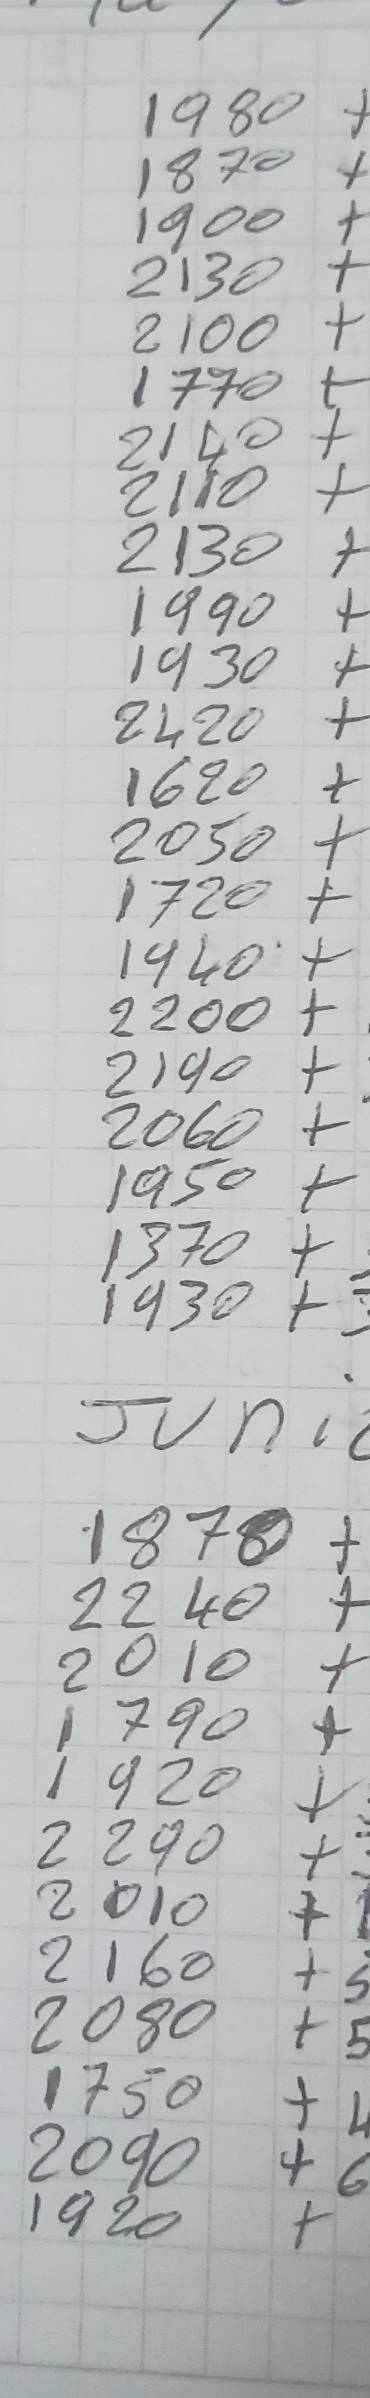 1980 +
1870 +
1900 +
2130 +
2100 +
1770 +
2140 +
2110 +
2130 +
1990 +
1930 +
2420 +
1620 +
2050 +
1720 +
1940 +
2200 +
2190 +
2060 +
1950 +
1370 +
1930 +
Junio
1870 +
2240 +
2010 +
1790 +
1920 +
2290 +
2010 +
2160 + 5
2080 + 5
1750 + 4
2090 + 6
1920 +